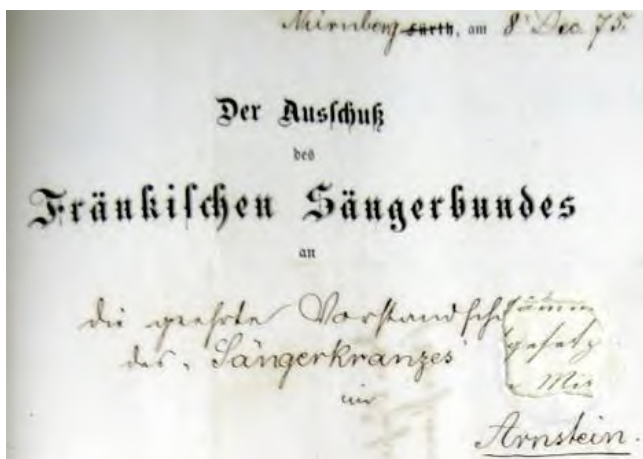 Nürnberg Fürth, am 8 Dec. 75.
Der Ausschuß
des
Fränkischen Sängerbundes
an
die geehrte Vorstandsch
des „Sängerkranzes"
in
Arnstein.